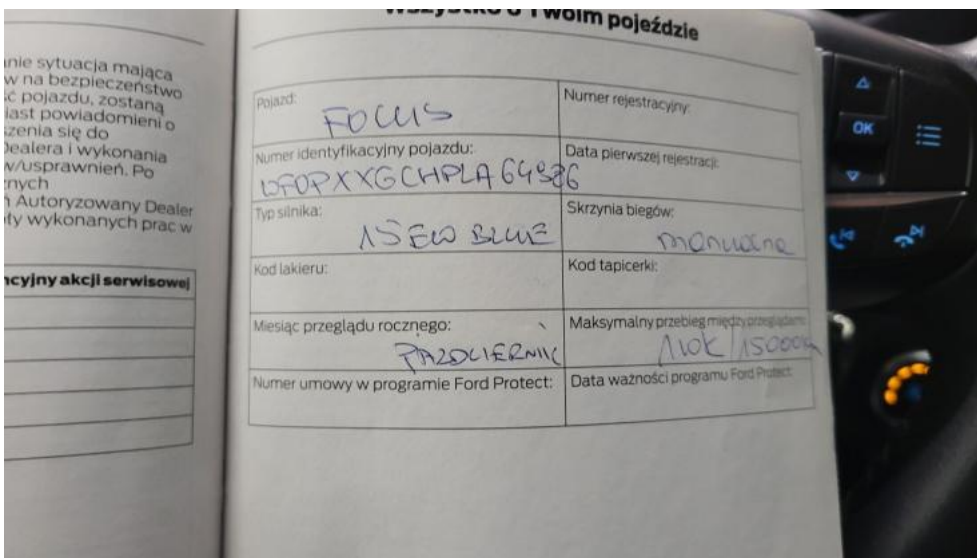 nie sytuacja mająca
w na bezpieczeństwo
ć pojazdu, zostaną
iast powiadomieni o
zenia się do
Dealera i wykonania
w/usprawnień. Po
nych
Autoryzowany Dealer
ty wykonanych prac w
ncyjny akcji serwisowej
Wszystko o Twoim pojeździe
Pojazd:
FOCUS
Numer rejestracyjny:
Numer identyfikacyjny pojazdu:
WF0PXXGCHPLA64986
Data pierwszej rejestracji:
Typ silnika:
1.5 ECO BLUE
Skrzynia biegów:
manualna
Kod lakieru:
Kod tapicerki:
Miesiąc przeglądu rocznego:
PAŹDZIERNIK
Maksymalny przebieg między przeglądami:
1 rok / 15000
Numer umowy w programie Ford Protect:
Data ważności programu Ford Protect:
OK